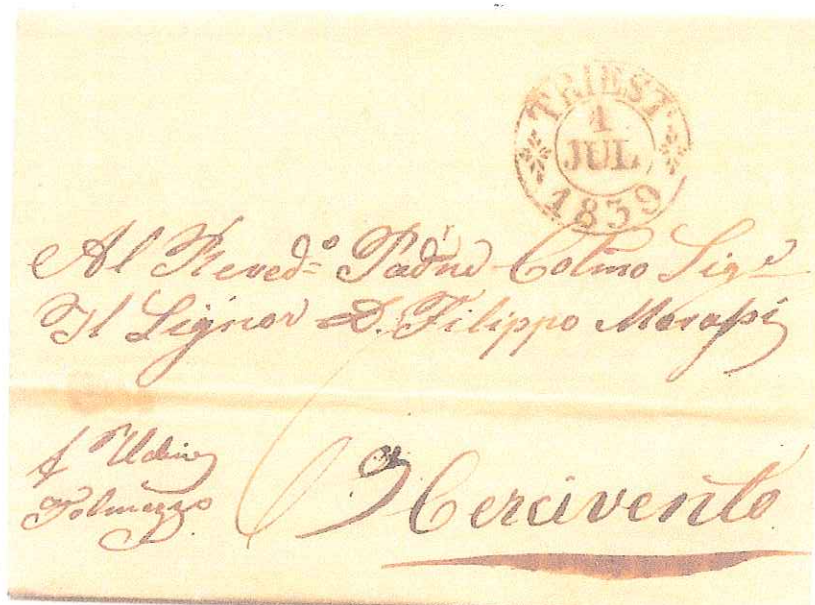 TRIEST
1
JUL
1839
Al Reved:º Padne Colmo Sigʳ
Il Signor D. Filippo Morassi
f Udine
Tolmezzo
6
Cercivento